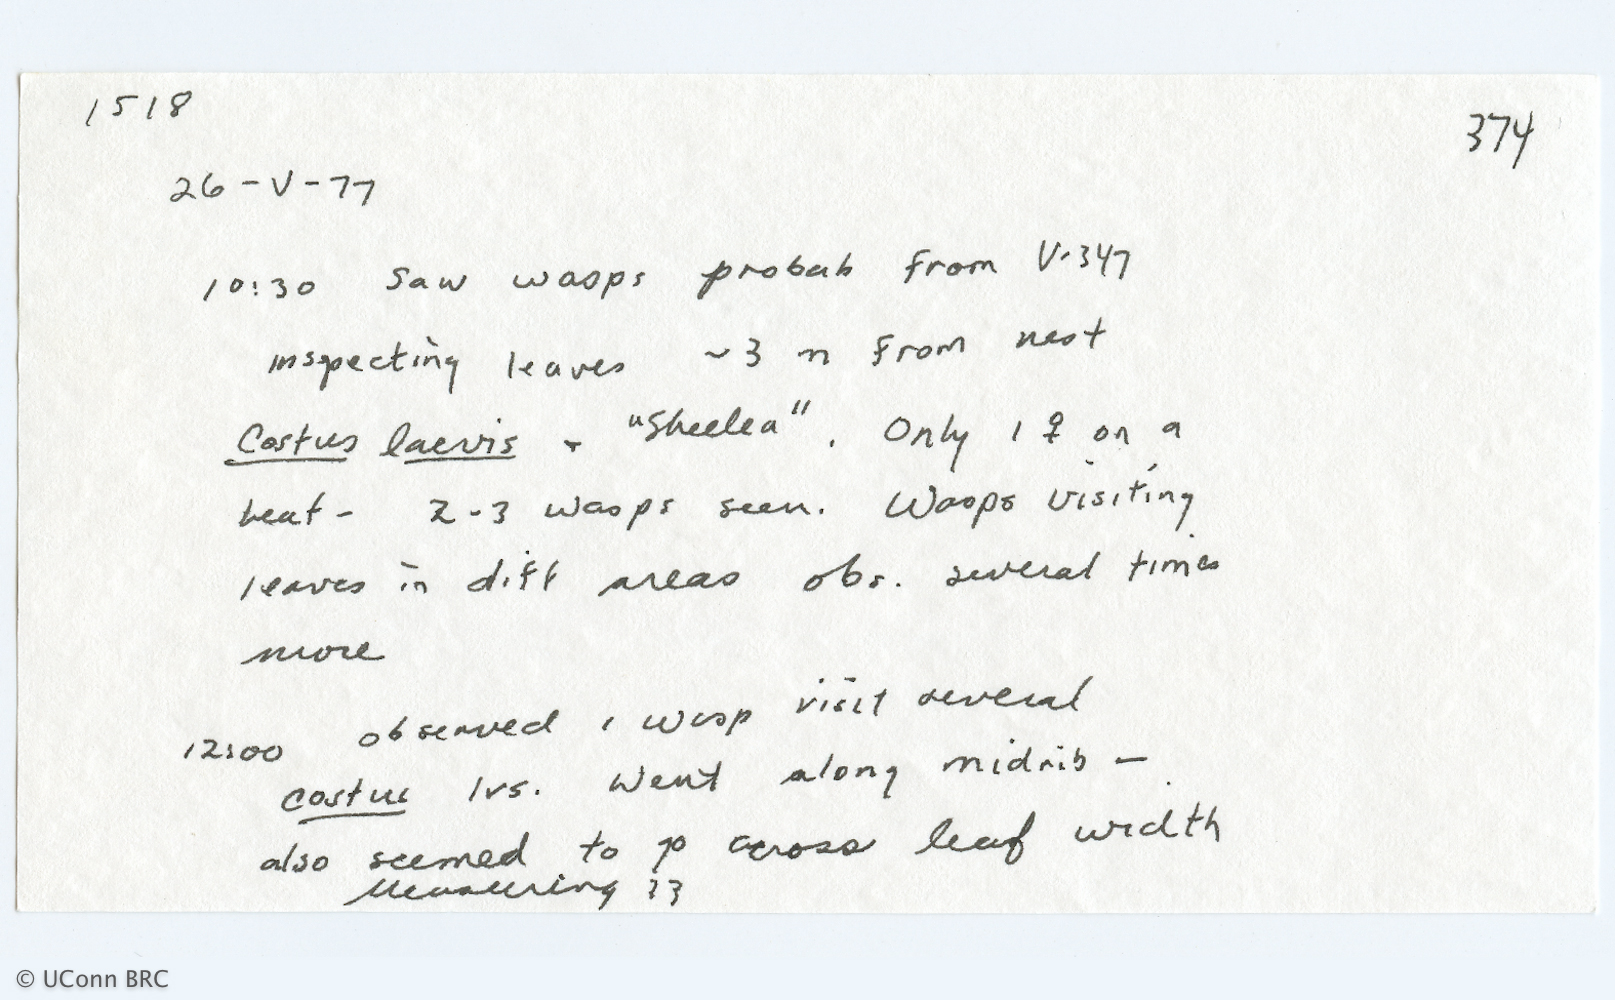 1518
374
26-V-77
10:30 Saw wasps probab from V-347
inspecting leaves ~3 m from nest
Costus laevis + "Sheelea". Only 1 ♀ on a
leaf - 2-3 wasps seen. Wasps visiting
leaves in diff areas obs. several times
more
12:00 observed 1 wasp visit several
Costus lvs. Went along midrib —
also seemed to go across leaf width
Measuring ??
© UConn BRC